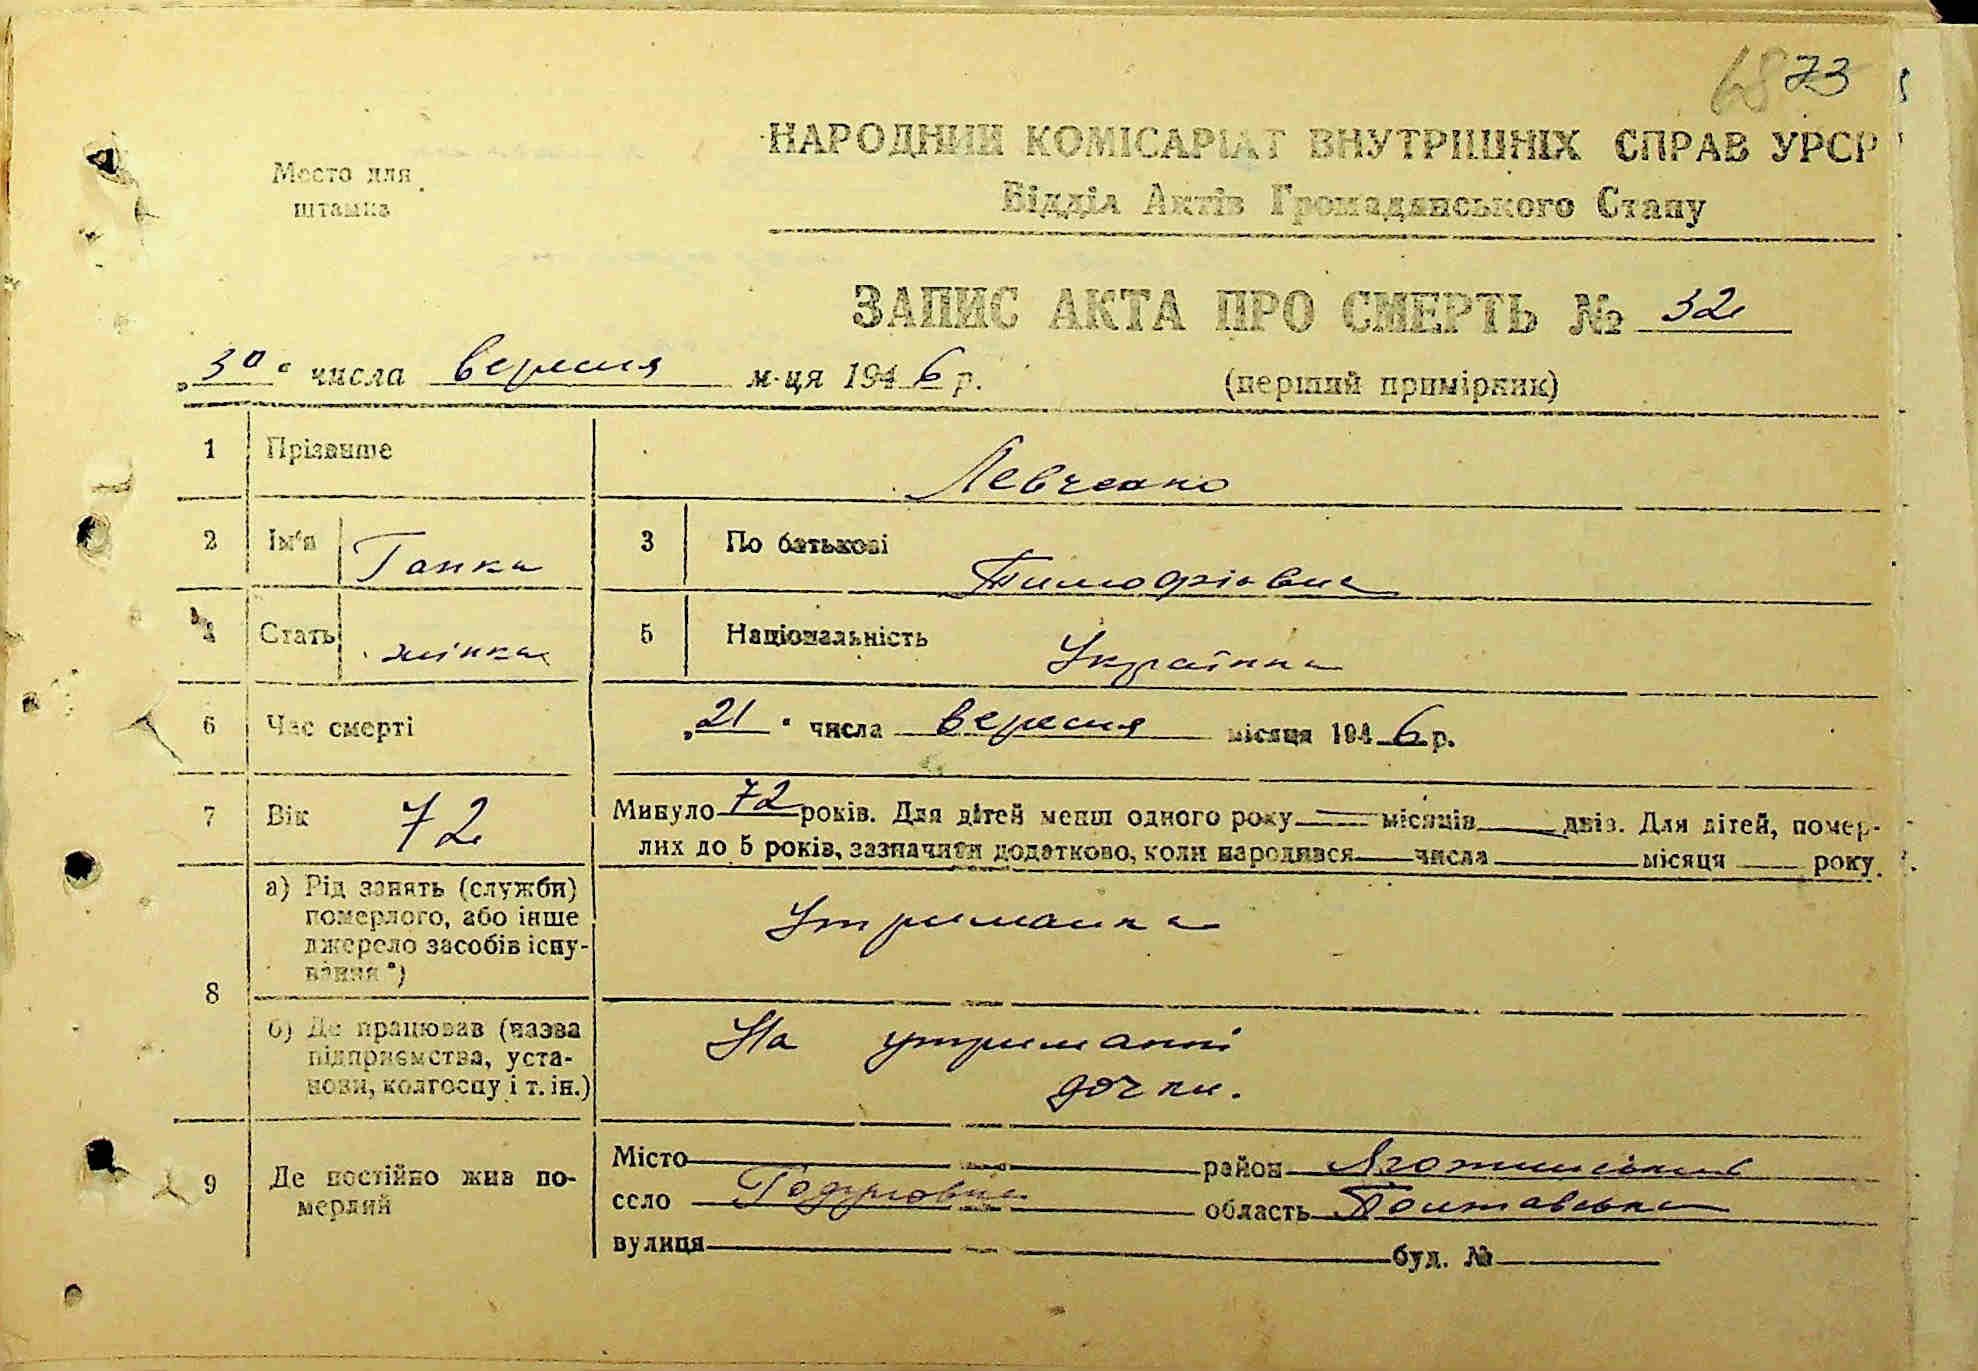 68 73
Место для
штампа
НАРОДНИЙ КОМІСАРІАТ ВНУТРІШНІХ СПРАВ УРСР
Відділ Актів Громадянського Стану
ЗАПИС АКТА ПРО СМЕРТЬ № 32
„30“ числа вересня м-ця 1946 р. (перший примірник)
1 Прізвище Левченко
2 Ім'я Ганна 3 По батькові Тимофіївна
4 Стать жінка 5 Національність Українка
6 Час смерті „21“ числа вересня місяця 1946 р.
7 Вік 72 Минуло 72 років. Для дітей менш одного року — місяців — днів. Для дітей, помер-
лих до 5 років, зазначити додатково, коли народився — числа — місяця — року.
8 а) Рід занять (служби)
померлого, або інше
джерело засобів існу-
вання*)
Утриманка
б) Де працював (назва
підприємства, уста-
нови, колгоспу і т. ін.)
На утриманні
дочки.
9 Де постійно жив по-
мерлий
Місто — район Яготинський
село Годунівка область Полтавська
вулиця — буд. № —